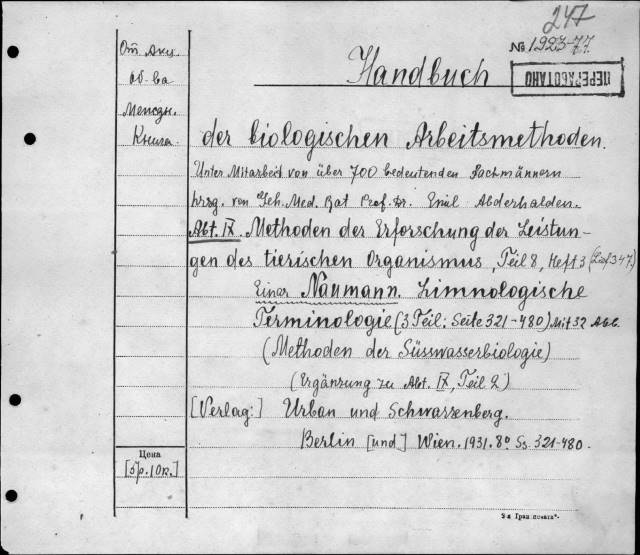 247
№ 1923-77.
ПЕРЕРАБОТАНО
От Акц.
об-ва
Междун.
Книга
Handbuch
der biologischen Arbeitsmethoden.
Unter Mitarbeit von über 700 bedeutenden Fachmännern
hrsg. von Geh. Med. Rat Prof. Dr. Emil Abderhalden.
Abt. IX. Methoden der Erforschung der Leistun-
gen des tierischen Organismus, Teil 8, Heft 3 (Lief. 347)
Einar Naumann. Limnologische
Terminologie (3 Teil: Seite 321-480) Mit 32 Abb.
(Methoden der Süsswasserbiologie)
(Ergänzung zu Abt. IX, Teil 2)
[Verlag:] Urban und Schwarzenberg.
Berlin [und] Wien. 1931. 8° Ss. 321-480.
Цена
[5р. 10к.]